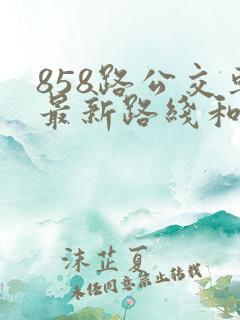 858路公交车
最新路线和
沫芷夏
未经同意禁止转载